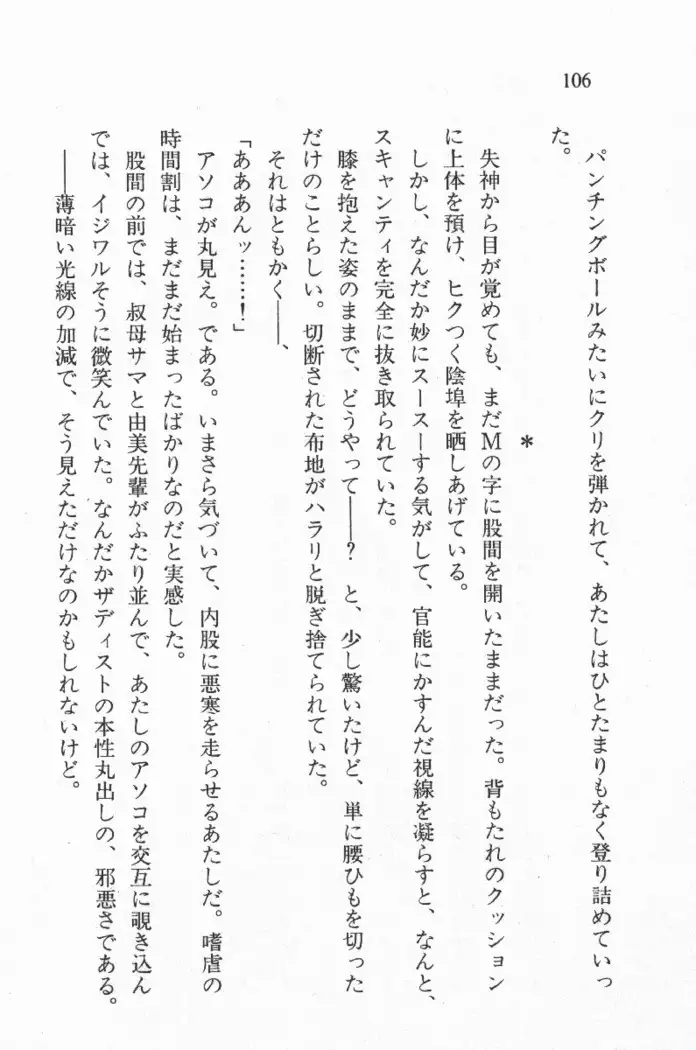 106
パンチングボールみたいにクリを弾かれて、あたしはひとたまりもなく登り詰めていっ
た。
*
失神から目が覚めても、まだMの字に股間を開いたままだった。背もたれのクッション
に上体を預け、ヒクつく陰埠を晒しあげている。
しかし、なんだか妙にスースーする気がして、官能にかすんだ視線を凝らすと、なんと、
スキャンティを完全に抜き取られていた。
膝を抱えた姿のままで、どうやって――？　と、少し驚いたけど、単に腰ひもを切った
だけのことらしい。切断された布地がハラリと脱ぎ捨てられていた。
それはともかく――、
「あああんッ……！」
アソコが丸見え。である。いまさら気づいて、内股に悪寒を走らせるあたしだ。嗜虐の
時間割は、まだまだ始まったばかりなのだと実感した。
股間の前では、叔母サマと由美先輩がふたり並んで、あたしのアソコを交互に覗き込ん
では、イジワルそうに微笑んでいた。なんだかザディストの本性丸出しの、邪悪さである。
――薄暗い光線の加減で、そう見えただけなのかもしれないけど。